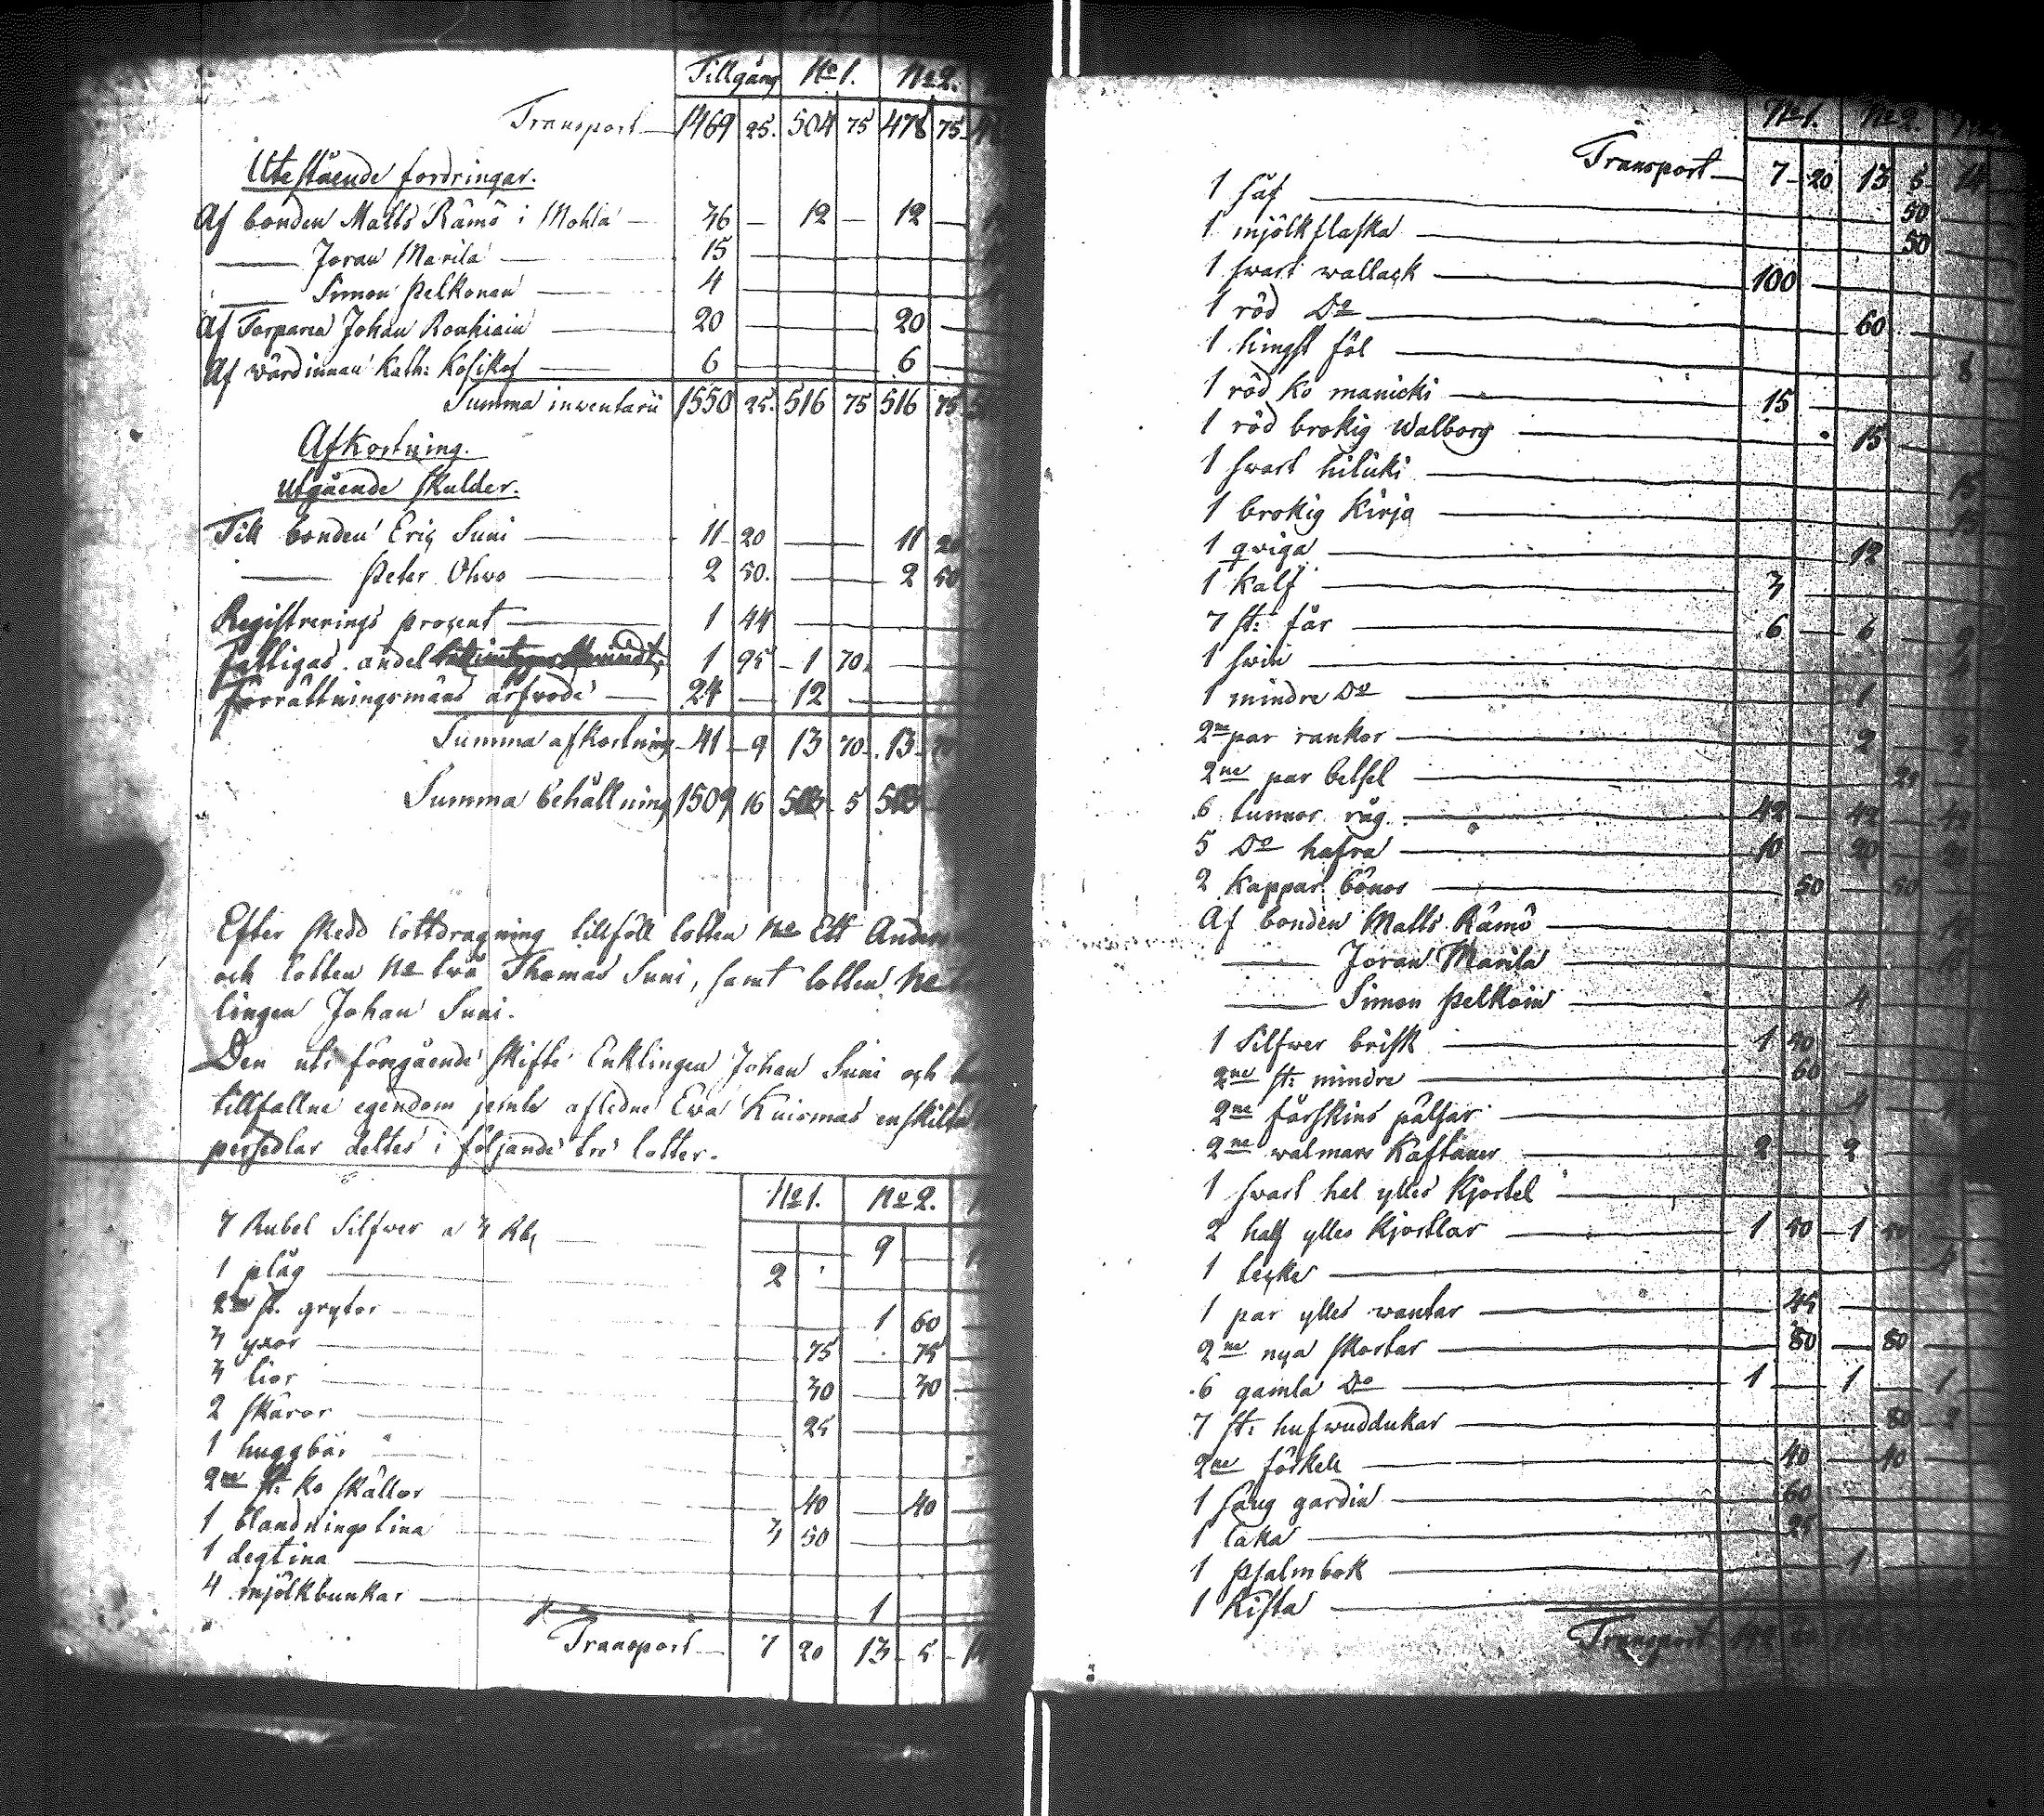 Tillgång No 1. No 2.
Transport 1469 25. 504 75 478 75
Utestående fordringar.
Af bonden Matts Rämö i Mohla 36 — 12 — 12 —
— Joran Marila 15
— Simon Pelkonen 4
Af Torparen Johan Rouhiain 20 20
Af wärdinnan Kath: Kosikof 6 6
Summa inventarii 1550 25. 516 75 516 75
Afkortning.
Utgående skulder.
Till bonden Eric Suni 11 20 11 20
— Peter Ohvo 2 50. 2 50
Registrerings procent 1 44
Fattigas andel 1 95 1 70
Förrättningsmäns arfvode 24 — 12
Summa afkortning 41 9 13 70 13 70
Summa behållning 1509 16 503 5 503
Efter skedd lottdragning tillföll lotten No Ett
och lotten No två Thomas Suni, samt lotten No
lingen Johan Suni.
Den uti föregående skifte Enklingen Johan Suni och
tillfallne egendom jemte aflidne Eva Kuismas enskilta
persedlar deltes i följande tre lotter.
No 1. No 2.
3 Rubel Silfwer a 3 Rb 9
1 plåg 2
2ne st. grytor 1 60
3 yxor 75 75
3 lior 30 30
2 skäror 25
1 huggbär
2ne st: ko skällor 40 40
1 blandningstina 3 50
1 degtina
4 mjölkbunkar 1
Transport 7 20 13 5
No 1. No 2.
Transport 7 20 13 5 14
1 håf 50
1 mjölkflaska 50
1 swart wallack 100
1 röd Do 60
1 hingst föl 8
1 röd ko manicki 15
1 röd brokig Walborg 15
1 swart hiluki 15
1 brokig Kirjo 15
1 qviga 12
1 Kalf 3
7 st: får 6 6 9
1 swin
1 mindre Do 1
2ne par rankor 2 2
2ne par betsel 20
6 tunnor råg 42 42 42
5 Do hafra 10 20 20
2 kappar bönor 50 50
Af bonden Matts Rämö
— Joran Marila
— Simon Pelkoin 4
1 Silfwer brisk 1 50
2ne st: mindre 60
2ne fårskins pälsar 4
2ne walmars Kaftaner 2 2
1 swart hel ylles Kjortel
2 half ylles Kjortlar 1 50 1 50
1 täcke
1 par ylles wantar 45
2ne nya skortar 80 80
6 gamla Do 1 1 1
7 st: hufwuddukar 80 2
2ne förkelt 40 40
1 säng gardin 60
1 laka 25
1 psalmbok 1
1 Kista
Transport